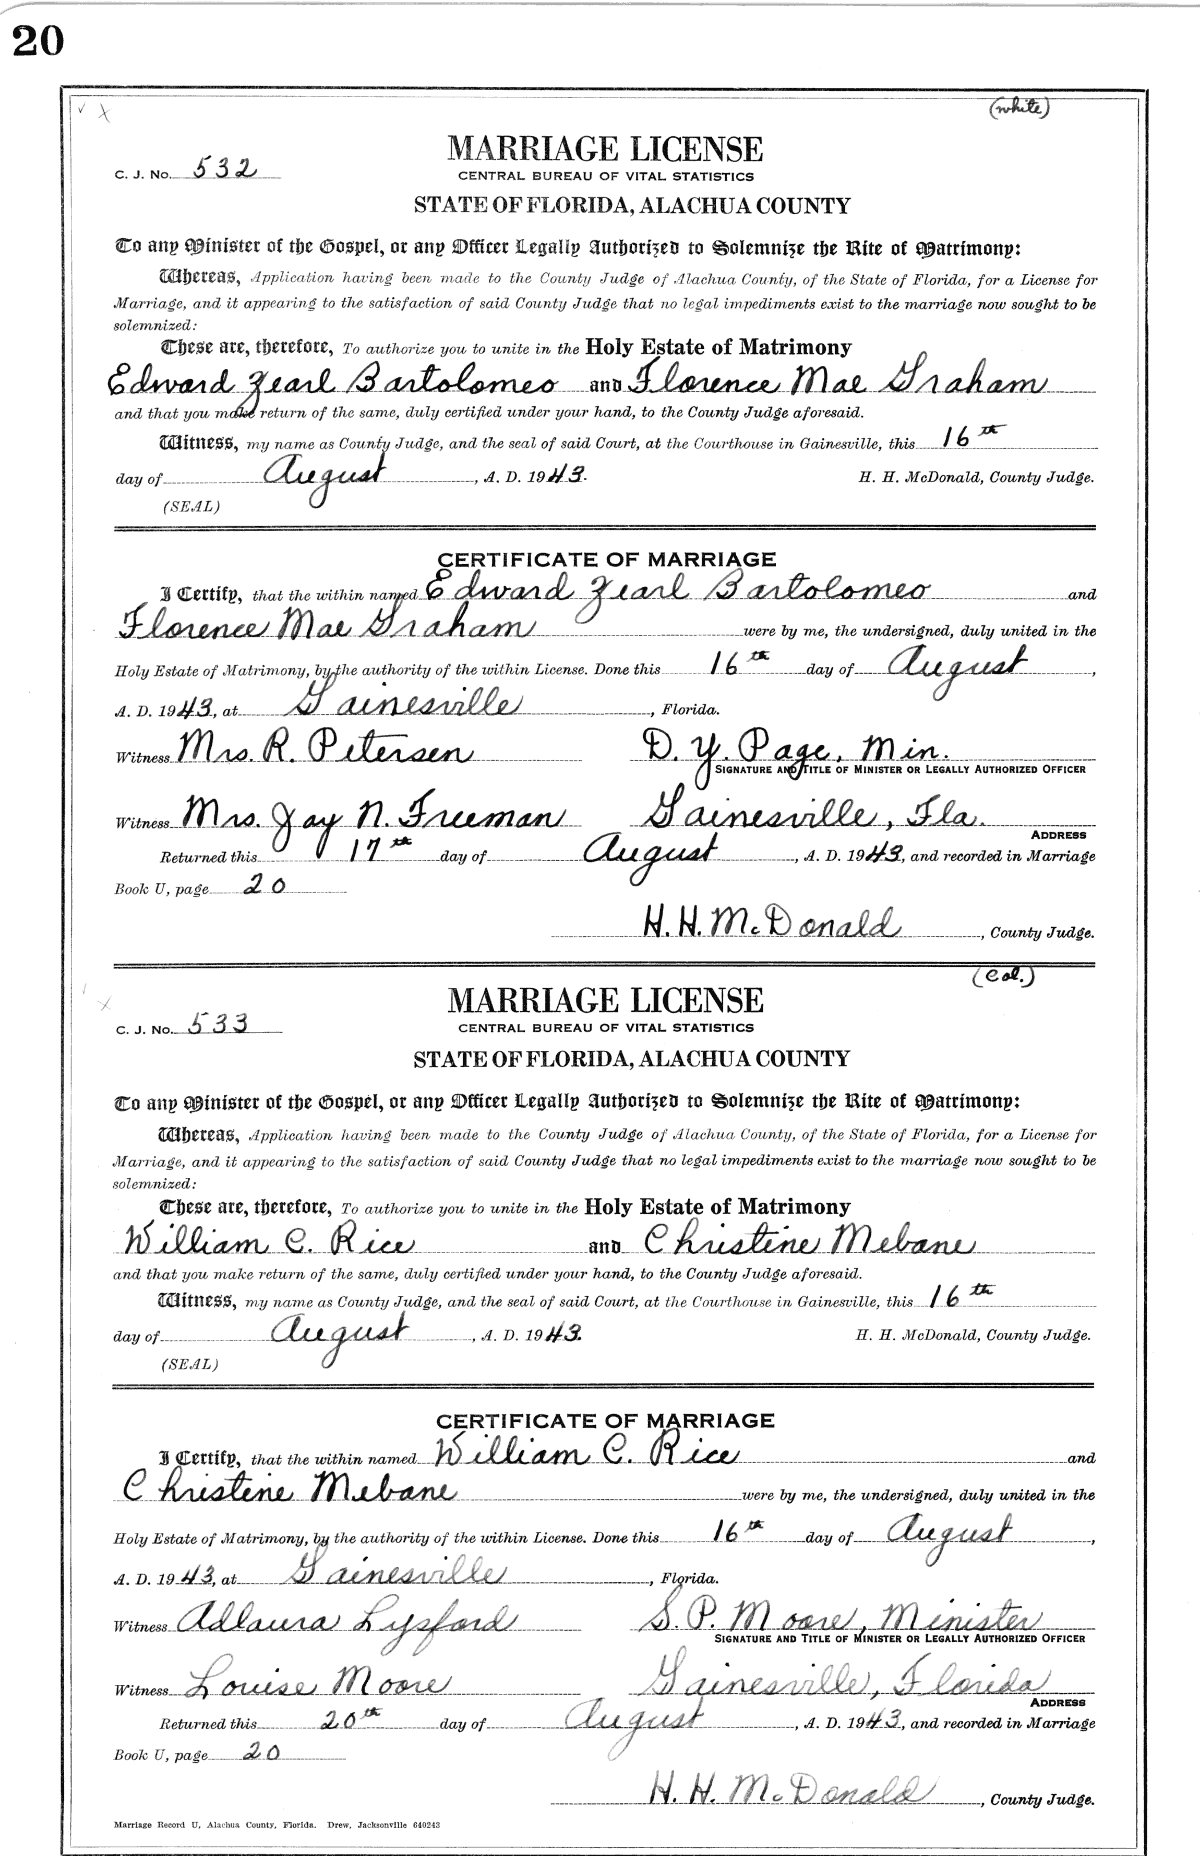 20
(white)
MARRIAGE LICENSE
C. J. No. 532
CENTRAL BUREAU OF VITAL STATISTICS
STATE OF FLORIDA, ALACHUA COUNTY
To any Minister of the Gospel, or any Officer Legally Authorized to Solemnize the Rite of Matrimony:
Whereas, Application having been made to the County Judge of Alachua County, of the State of Florida, for a License for
Marriage, and it appearing to the satisfaction of said County Judge that no legal impediments exist to the marriage now sought to be
solemnized:
These are, therefore, To authorize you to unite in the Holy Estate of Matrimony
Edward Zearl Bartolomeo and Florence Mae Graham
and that you make return of the same, duly certified under your hand, to the County Judge aforesaid.
Witness, my name as County Judge, and the seal of said Court, at the Courthouse in Gainesville, this 16th
day of August, A. D. 1943. H. H. McDonald, County Judge.
(SEAL)
CERTIFICATE OF MARRIAGE
I Certify, that the within named Edward Zearl Bartolomeo and
Florence Mae Graham were by me, the undersigned, duly united in the
Holy Estate of Matrimony, by the authority of the within License. Done this 16th day of August,
A. D. 1943, at Gainesville, Florida.
Witness Mrs. R. Petersen D. Y. Page, Min.
SIGNATURE AND TITLE OF MINISTER OR LEGALLY AUTHORIZED OFFICER
Witness Mrs. Jay N. Freeman Gainesville, Fla.
ADDRESS
Returned this 17th day of August, A. D. 1943, and recorded in Marriage
Book U, page 20
H. H. McDonald, County Judge.
(Col.)
MARRIAGE LICENSE
C. J. No. 533
CENTRAL BUREAU OF VITAL STATISTICS
STATE OF FLORIDA, ALACHUA COUNTY
To any Minister of the Gospel, or any Officer Legally Authorized to Solemnize the Rite of Matrimony:
Whereas, Application having been made to the County Judge of Alachua County, of the State of Florida, for a License for
Marriage, and it appearing to the satisfaction of said County Judge that no legal impediments exist to the marriage now sought to be
solemnized:
These are, therefore, To authorize you to unite in the Holy Estate of Matrimony
William C. Rice and Christine Mebane
and that you make return of the same, duly certified under your hand, to the County Judge aforesaid.
Witness, my name as County Judge, and the seal of said Court, at the Courthouse in Gainesville, this 16th
day of August, A. D. 1943. H. H. McDonald, County Judge.
(SEAL)
CERTIFICATE OF MARRIAGE
I Certify, that the within named William C. Rice and
Christine Mebane were by me, the undersigned, duly united in the
Holy Estate of Matrimony, by the authority of the within License. Done this 16th day of August,
A. D. 1943, at Gainesville, Florida.
Witness Adlaura Lysford S. P. Moore, Minister
SIGNATURE AND TITLE OF MINISTER OR LEGALLY AUTHORIZED OFFICER
Witness Louise Moore Gainesville, Florida
ADDRESS
Returned this 20th day of August, A. D. 1943, and recorded in Marriage
Book U, page 20
H. H. McDonald, County Judge.
Marriage Record U, Alachua County, Florida. Drew, Jacksonville 640243